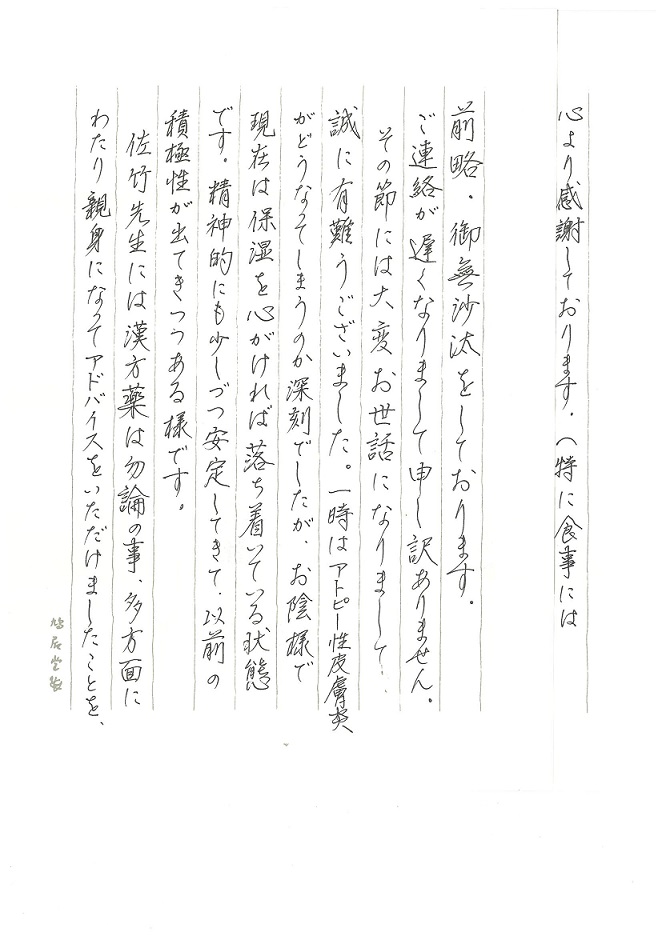 心より感謝しております。(特に食事には
前略・御無沙汰をしております。
ご連絡が遅くなりまして申し訳ありません。
その節には大変お世話になりまして…
誠に有難うございました。一時はアトピー性皮膚炎
がどうなってしまうのか深刻でしたが、お陰様で
現在は保湿を心がければ落ち着いている状態
です。精神的にも少しづつ安定してきて、以前の
積極性が出てきつつある様です。
佐竹先生には漢方薬は勿論の事、多方面に
わたり親身になってアドバイスをいただけましたことを、
鳩居堂製